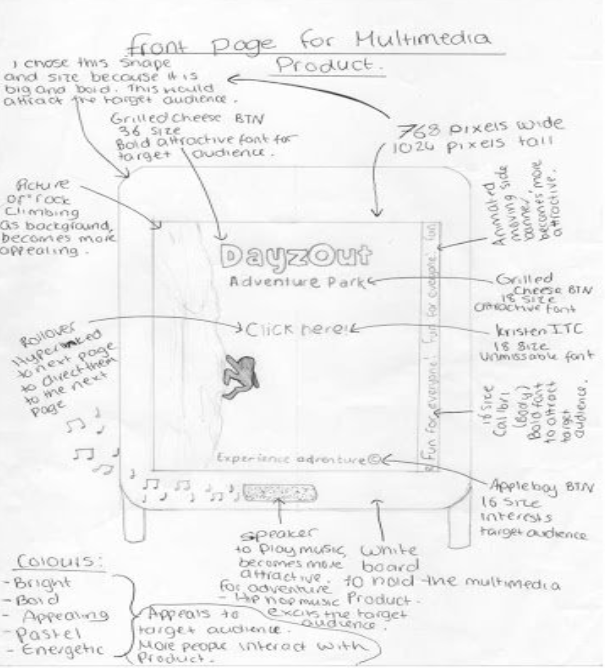 front page for Multimedia
Product.
I chose this shape
and size because it is
big and bold. This would
attract the target audience.
Grilled Cheese BTN
36 size
Bold attractive font for
target audience.
768 pixels wide
1024 pixels tall
Picture
of rock
climbing
as background,
becomes more
appealing.
DayzOut
Adventure Park
Click here!
Experience adventure
Fun for everyone! Fun for everyone! Fun
Animated
moving side
banner,
becomes more
attractive.
Grilled
Cheese BTN
18 size
attractive font
Kristen ITC
18 size
Unmissable font
16 size
Calibri
(Body)
Bold font
to attract
target
audience.
Appleboy BTN
16 size
interests
target audience
Rollover
Hyperlinked
to next page
to direct them
to the next
page
speaker
to play music,
becomes more
attractive.
for adventure
- Hip hop music
excits the target
audience.
White
board
to hold the multimedia
Product.
Colours:
- Bright
- Bold
- Appealing
- Pastel
- Energetic
Appeals to
target audience.
More people interact with
Product.